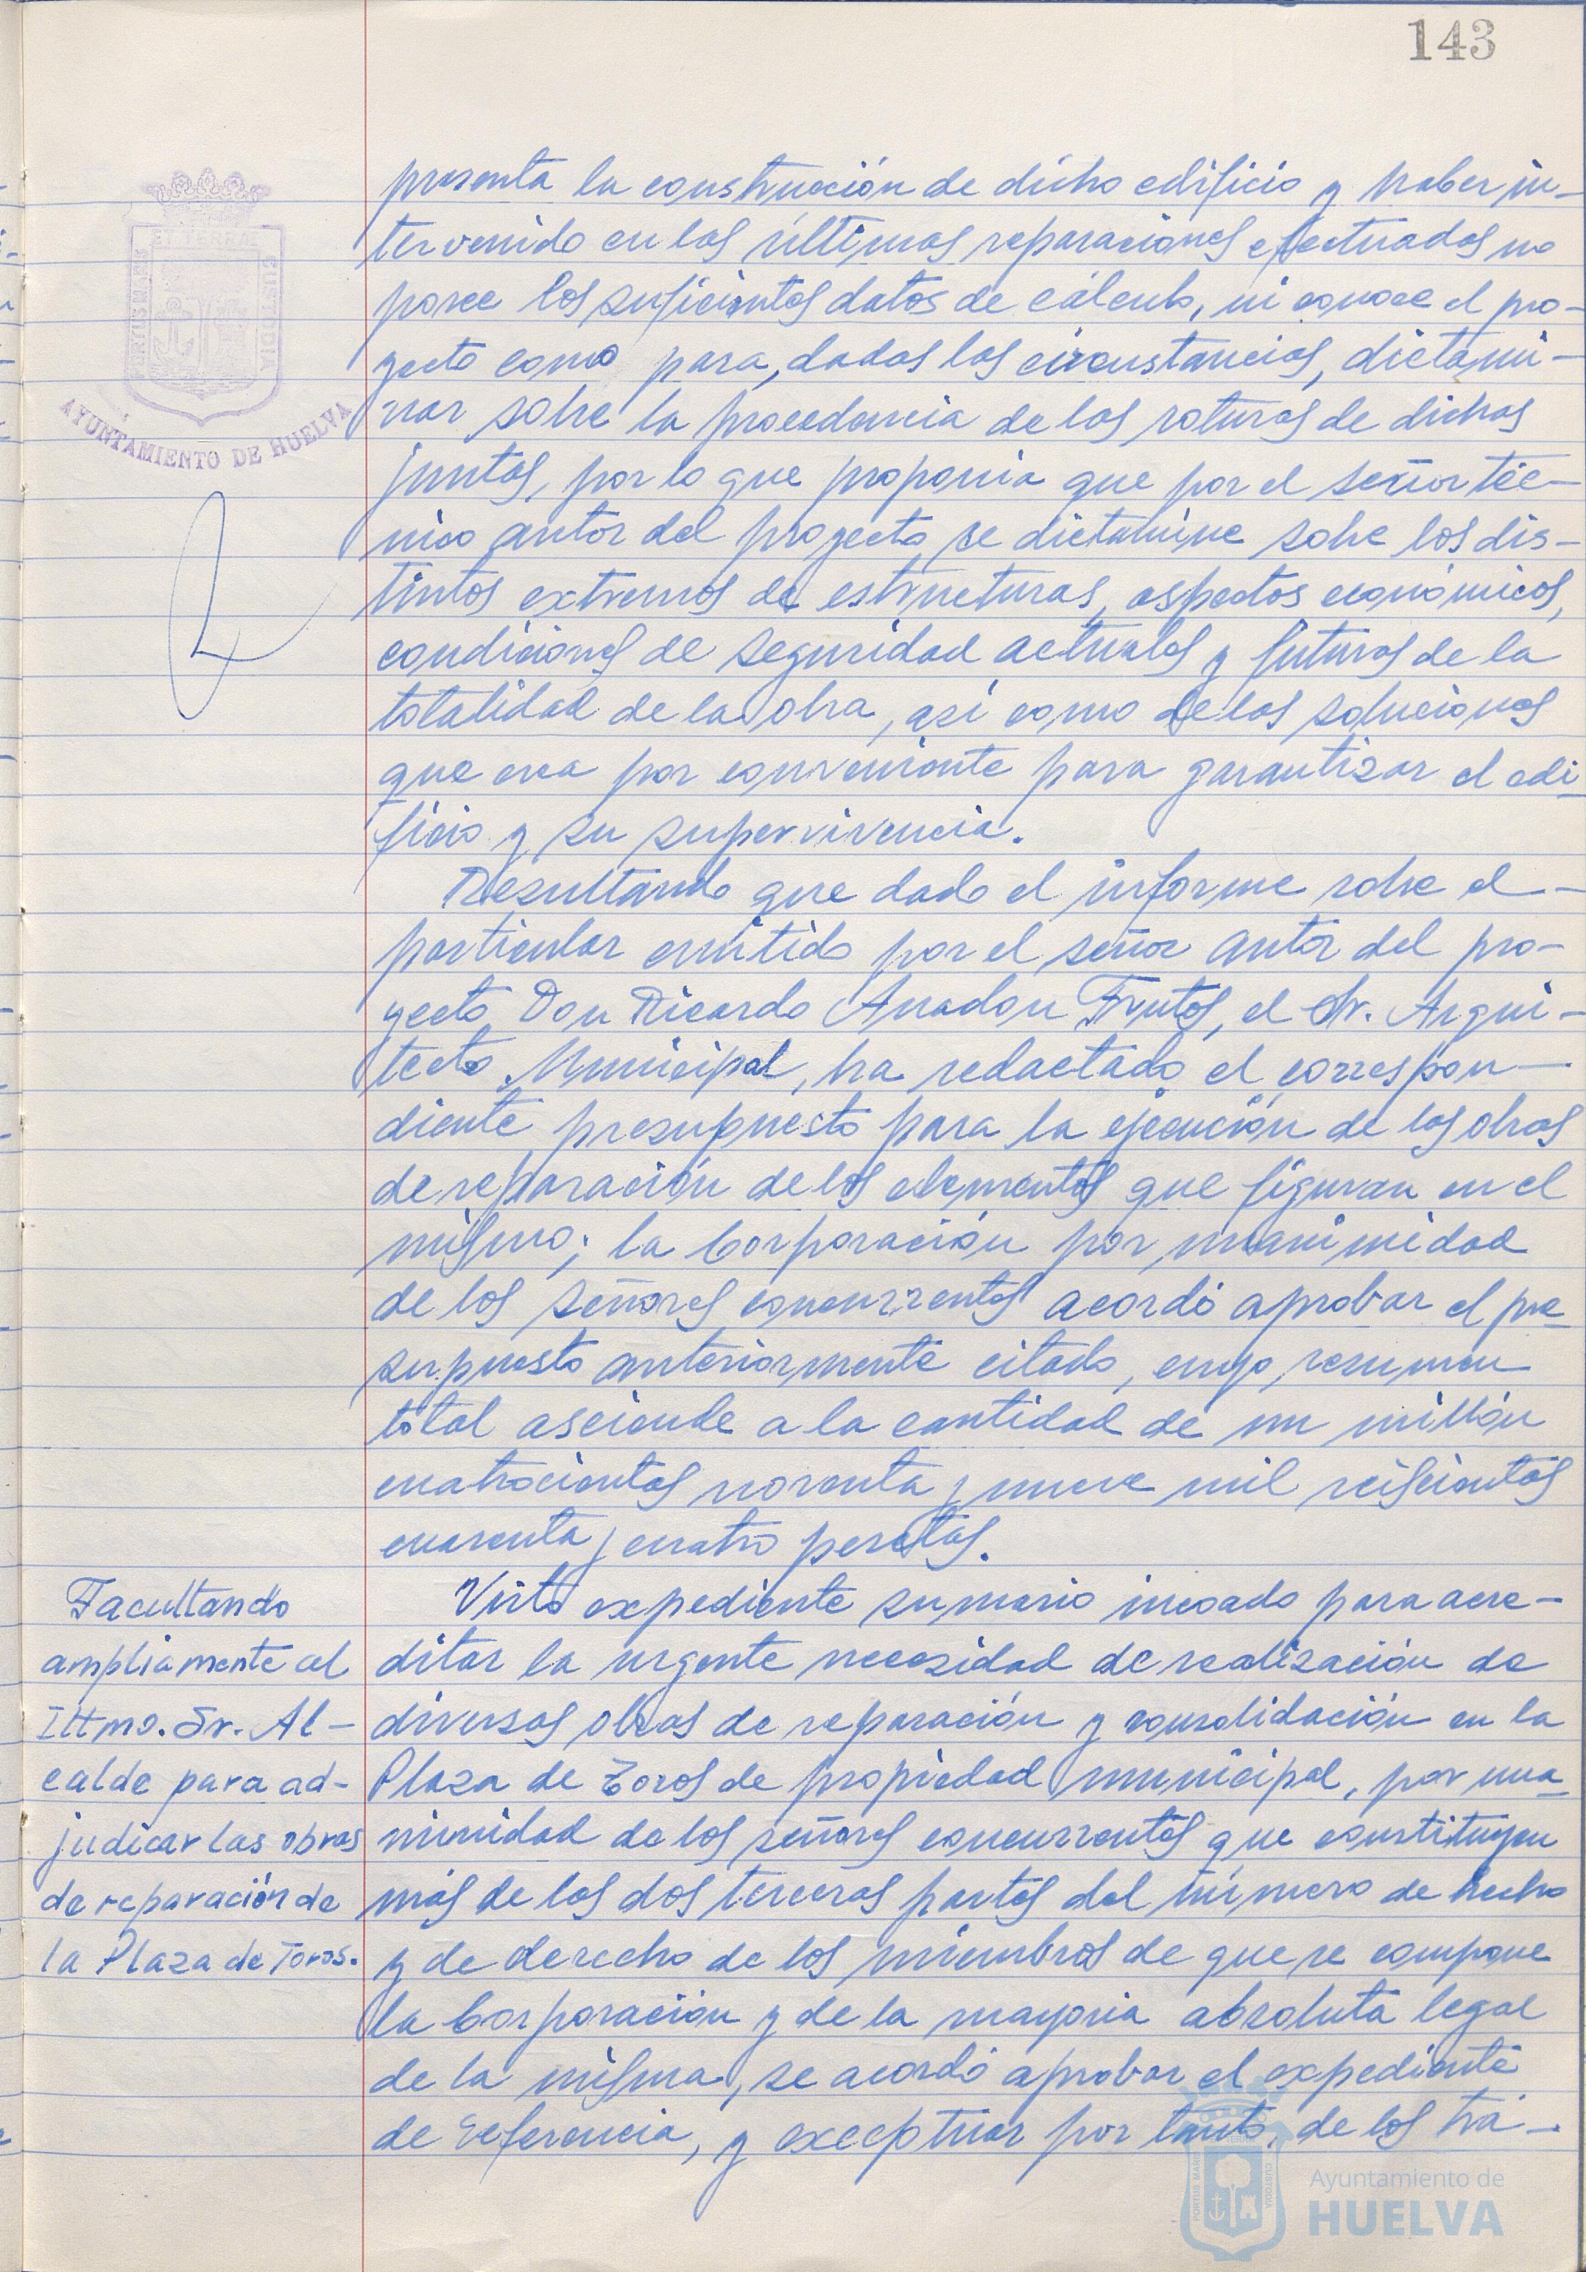 143
presenta la construcción de dicho edificio y haber in-
tervenido en las últimas reparaciones efectuadas no
posee los suficientes datos de cálculo, ni conoce el pro-
yecto como para, dadas las circustancias, dictami-
nar sobre la procedencia de las roturas de dichas
juntas, por lo que proponía que por el señor téc-
nico autor del proyecto se dictamine sobre los dis-
tintos extremos de estructuras, aspectos económicos,
condiciones de seguridad actuales y futuras de la
totalidad de la obra, así como de las soluciones
que crea por conveniente para garantizar el edi-
ficio y su supervivencia.
Resultando que dado el informe sobre el
particular emitido por el señor autor del pro-
yecto Don Ricardo Anadon Frutos, el Sr. Arqui-
tecto Municipal, ha redactado el correspon-
diente presupuesto para la ejecución de las obras
de reparación de los elementos que figuran en el
mismo; la Corporación por unanimidad
de los señores concurrentes acordó aprobar el pre-
supuesto anteriormente citado, cuyo resumen
total asciende a la cantidad de un millón
cuatrocientas noventa y nueve mil seiscientas
cuarenta y cuatro pesetas.
Facultando
ampliamente al
Iltmo. Sr. Al-
calde para ad-
judicar las obras
de reparación de
la Plaza de Toros.
Visto expediente sumario incoado para acre-
ditar la urgente necesidad de realización de
diversas obras de reparación y consolidación en la
Plaza de Toros de propiedad municipal, por una-
nimidad de los señores concurrentes que constituyen
más de las dos terceras partes del número de hecho
y de derecho de los miembros de que se compone
la Corporación y de la mayoria absoluta legal
de la misma, se acordó aprobar el expediente
de referencia, y exceptuar por tanto, de los trá-
AYUNTAMIENTO DE HUELVA
PORTUS MARIS
ET TERRAE
CUSTODIA
Ayuntamiento de
HUELVA